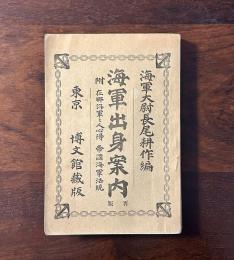 海軍大尉長尾耕作編
海軍出身案内
附 在郷海軍々人心得 帝國海軍法規
東京 博文館蔵版